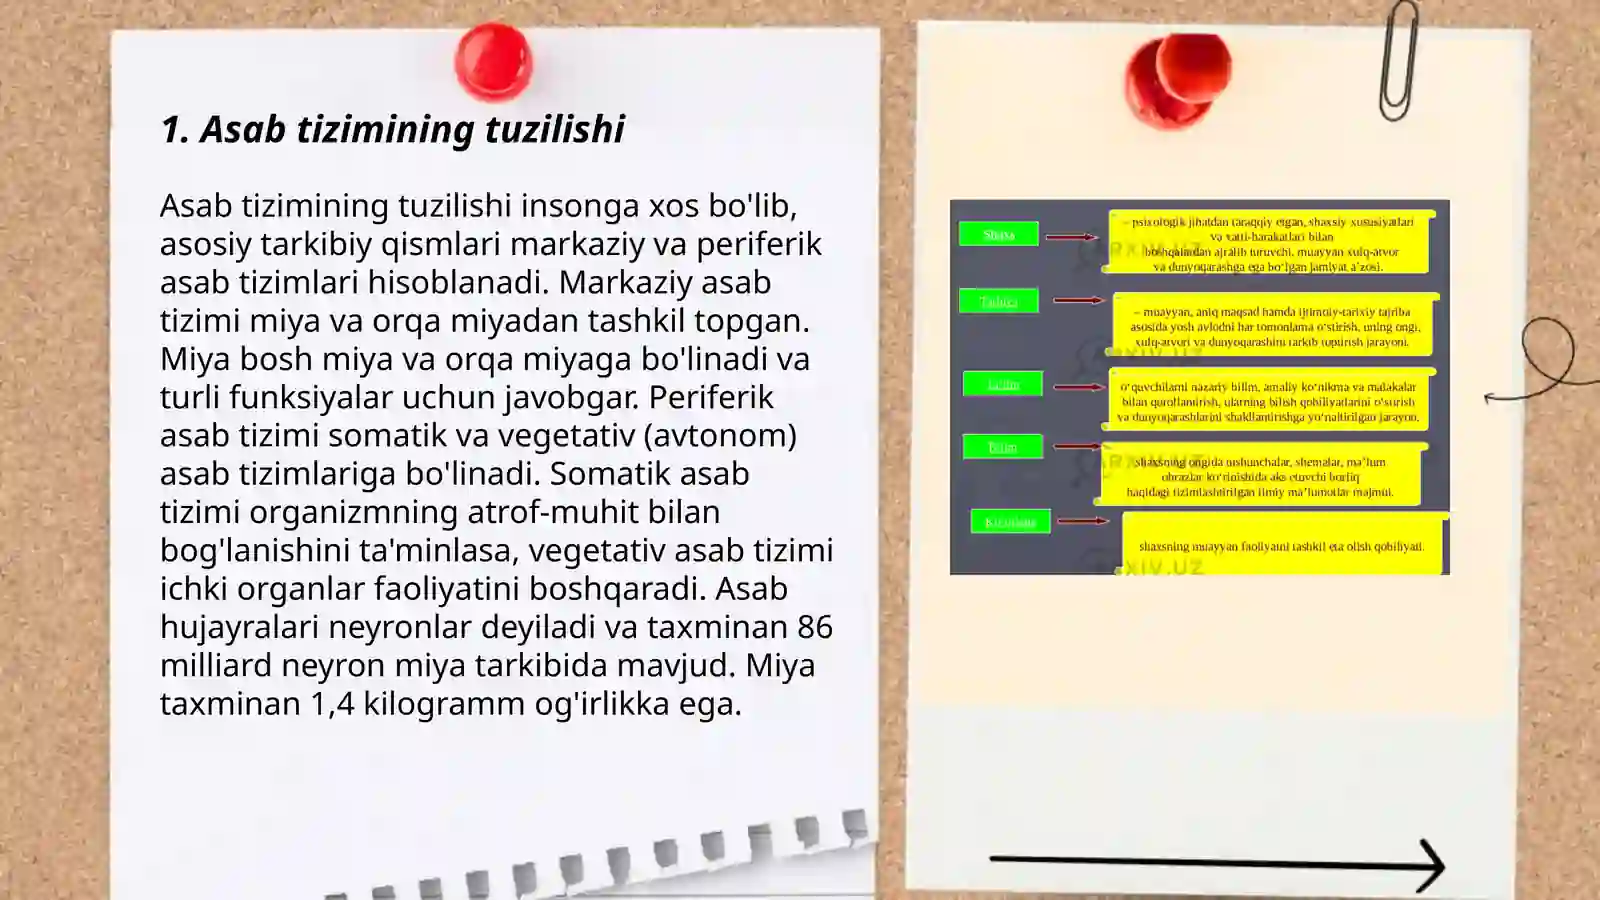 1. Asab tizimining tuzilishi
Asab tizimining tuzilishi insonga xos bo'lib,
asosiy tarkibiy qismlari markaziy va periferik
asab tizimlari hisoblanadi. Markaziy asab
tizimi miya va orqa miyadan tashkil topgan.
Miya bosh miya va orqa miyaga bo'linadi va
turli funksiyalar uchun javobgar. Periferik
asab tizimi somatik va vegetativ (avtonom)
asab tizimlariga bo'linadi. Somatik asab
tizimi organizmning atrof-muhit bilan
bog'lanishini ta'minlasa, vegetativ asab tizimi
ichki organlar faoliyatini boshqaradi. Asab
hujayralari neyronlar deyiladi va taxminan 86
milliard neyron miya tarkibida mavjud. Miya
taxminan 1,4 kilogramm og'irlikka ega.
– psixologik jihatdan taraqqiy etgan, shaxsiy xususiyatlari
va xatti-harakatlari bilan
boshqalardan ajralib turuvchi, muayyan xulq-atvor
va dunyoqarashga ega bo‘lgan jamiyat a’zosi.
– muayyan, aniq maqsad hamda ijtimoiy-tarixiy tajriba
asosida yosh avlodni har tomonlama o‘stirish, uning ongi,
xulq-atvori va dunyoqarashini tarkib toptirish jarayoni.
o‘quvchilarni nazariy bilim, amaliy ko‘nikma va malakalar
bilan qurollantirish, ularning bilish qobiliyatlarini o‘stirish
va dunyoqarashlarini shakllantirishga yo‘naltirilgan jarayon.
Bilim
shaxsning ongida tushunchalar, sxemalar, ma’lum
obrazlar ko‘rinishida aks etuvchi borliq
haqidagi tizimlashtirilgan ilmiy ma’lumotlar majmui.
shaxsning muayyan faoliyatni tashkil eta olish qobiliyati.